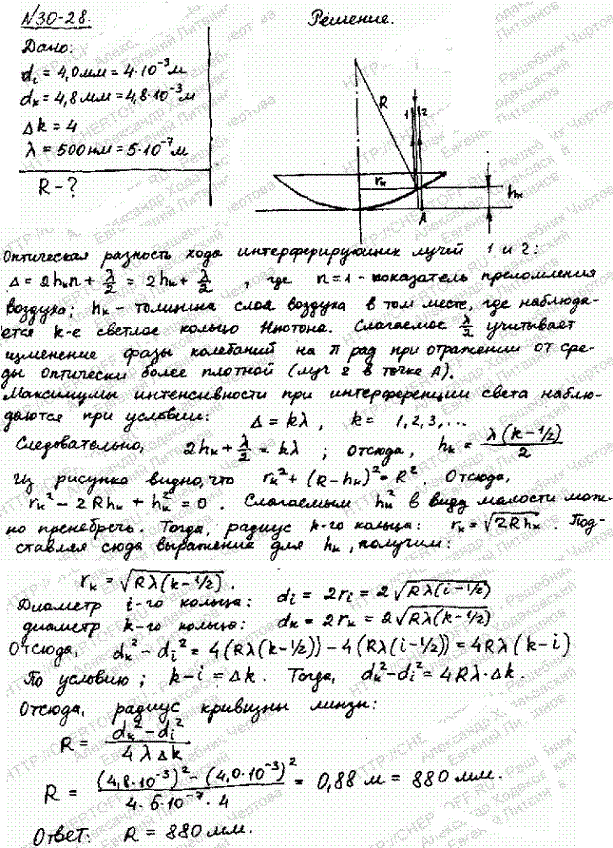 N30-28.
Решение.
Дано:
d_i = 4,0 мм = 4·10⁻³ м
d_k = 4,8 мм = 4,8·10⁻³ м
Δk = 4
λ = 500 нм = 5·10⁻⁷ м
R - ?
R
1 2
r_k
h_k
A
Оптическая разность хода интерферирующих лучей 1 и 2:
Δ = 2h_k n + λ/2 = 2h_k + λ/2 , где n = 1 - показатель преломления
воздуха; h_k - толщина слоя воздуха в том месте, где наблюда-
ется k-е светлое кольцо Ньютона. Слагаемое λ/2 учитывает
изменение фазы колебаний на π рад при отражении от сре-
ды оптически более плотной (луч 2 в точке A).
Максимумы интенсивности при интерференции света наблю-
даются при условии: Δ = kλ , k = 1,2,3,...
Следовательно, 2h_k + λ/2 = kλ ; Отсюда, h_k = λ(k-1/2)/2
Из рисунка видно, что r_k² + (R-h_k)² = R². Отсюда,
r_k² - 2Rh_k + h_k² = 0 . Слагаемым h_k² в виду малости мож-
но пренебречь. Тогда, радиус k-го кольца: r_k = √(2Rh_k) . Под-
ставляя сюда выражение для h_k, получим:
r_k = √(Rλ(k-1/2)) .
Диаметр i-го кольца: d_i = 2r_i = 2√(Rλ(i-1/2))
диаметр k-го кольца: d_k = 2r_k = 2√(Rλ(k-1/2))
Отсюда, d_k² - d_i² = 4(Rλ(k-1/2)) - 4(Rλ(i-1/2)) = 4Rλ(k-i)
По условию ; k-i = Δk . Тогда, d_k² - d_i² = 4Rλ·Δk .
Отсюда, радиус кривизны линзы:
R = (d_k² - d_i²)/(4λΔk)
R = ((4,8·10⁻³)² - (4,0·10⁻³)²)/(4·5·10⁻⁷·4) = 0,88 м = 880 мм.
Ответ: R = 880 мм.